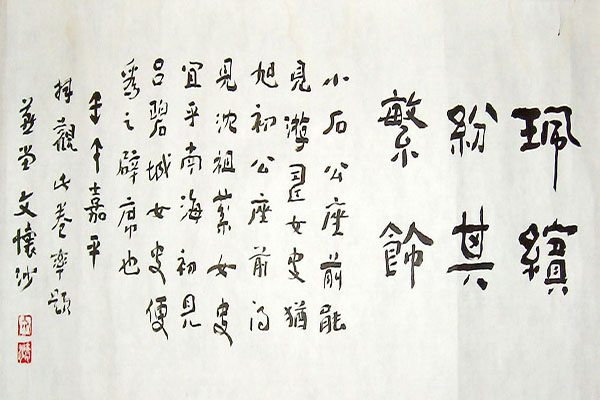 珮繽
紛其
繁飾
小石公座前能
見游壽女史猶
旭初公座前得
見沈祖棻女史
宜乎南海初見
呂碧城女史便
為之辟席也
壬午嘉平
拜觀此卷率題
燕堂文懷沙